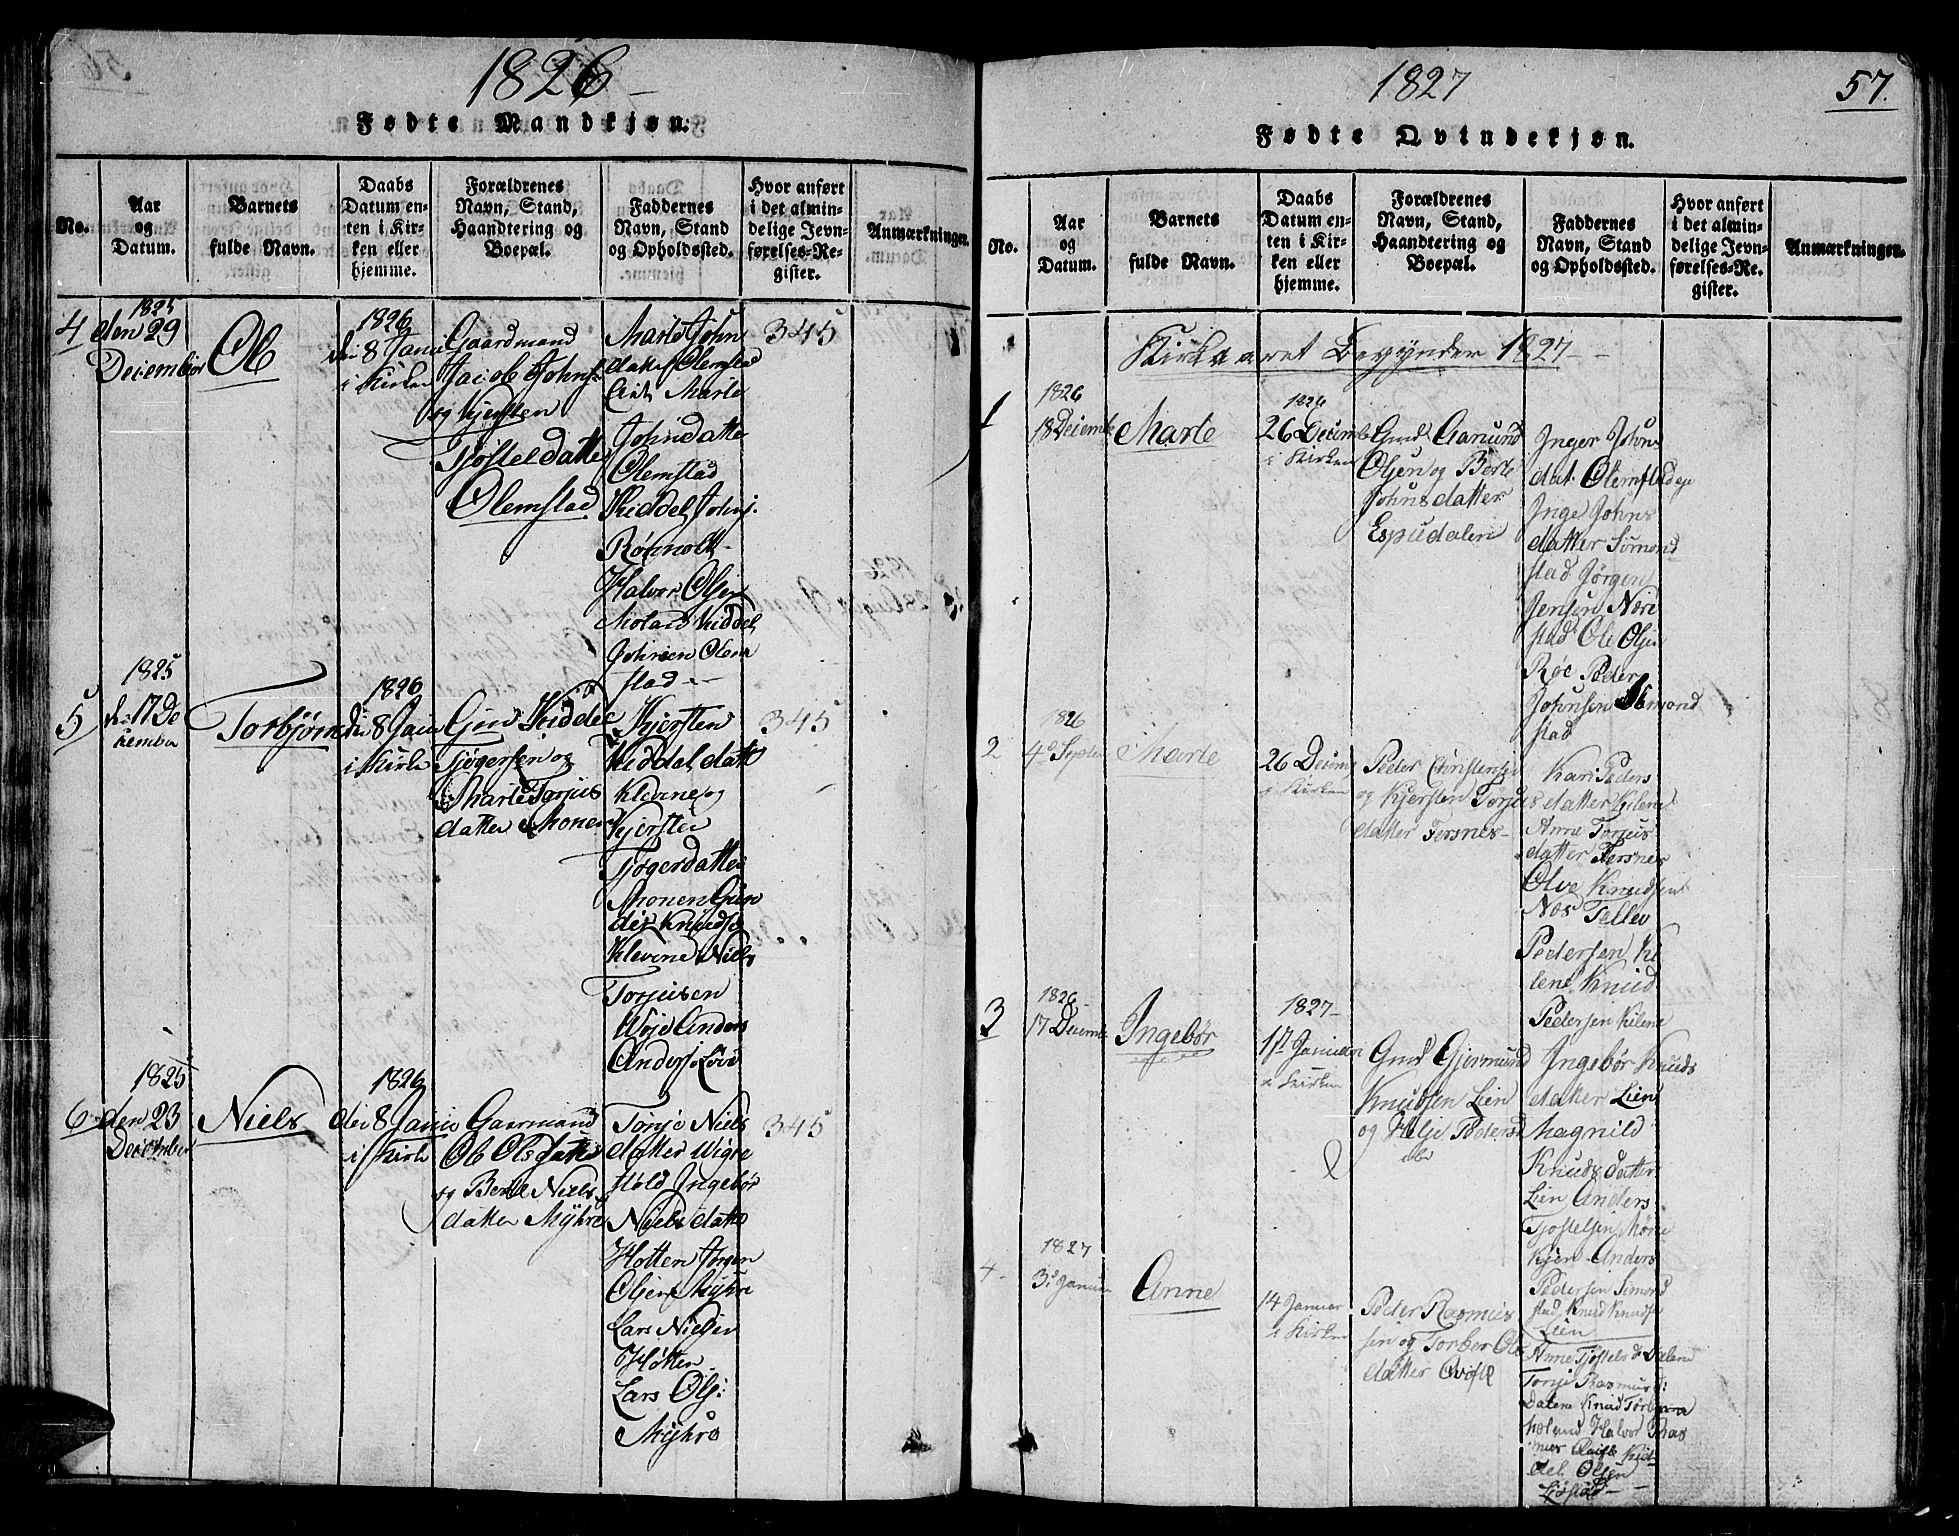 1826
Fødte Mandkjøn.
No.
Aar
og
Datum.
Barnets
fulde Navn.
Daabs
Datum en-
ten i Kir-
ken eller
hjemme.
Forældrenes
Navn, Stand,
Haandtering og
Boepæl.
Faddernes
Navn, Stand
og Opholdssted.
Hvor anført
i det almin-
delige Jevn-
førelses-Re-
gister.
Anmærkninger.
4
1825
den 29
Deiember
Ol
1826
8 Janu
i Kirken
Gaardmand
Jacob Johns
og Kjersten
Tjøsteldatter
Olemstad
Marte John
datter Olemstad
Marte
Johnsdatter
Olemstad
Kiddel Johns.
Rønholt
Halvor Olsen
Moland Kiddel
Johnsen Olem
stad
345
5
1825
17 De
cember
Torbjørn
1826
8 Janu
i Kirke
Kiddel
Tjøgersen og
Marte Torjus
datter Monen
Kjersten
Kiddelsdatter
Klevene og
Kjersten
Tjøgerdatter
Monen Gun
der Knudsen
Klevene Niels
Torjusen
Woje Anders
Anders. Løvd
345
6
1825
den 23
December
Niels
1826
den 8 Janu
i Kirke
Gaarmand
Ol Ols
og Berte Niels
datter Myhre
Torje Niels
datter Wigne
Ingebør
Niels datter
Hotten Jørgen
Olsen Myhre
Lars Nielsen
Hotten
Lars Ols:
Myhre
345
1827
57.
Fødte Qvindekjøn.
No.
Aar
og
Datum.
Barnets
fulde Navn.
Daabs
Datum en-
ten i Kir-
ken eller
hjemme.
Forældrenes
Navn, Stand,
Haandtering og
Boepæl.
Faddernes
Navn, Stand
og Opholdssted.
Hvor anført
i det almin-
delige Jevn-
førelses-Re-
gister.
Anmærkninger.
Kirkeaaret Begynder 1827
1
1826
18 Deiembr
Marte
1826
26 Decembr
i Kirken
Gmd Gunund
Olsen og Berte
Johnsdatter
Espudalen
Inger Johns
dat. Olemstad
Inge Johns
datter Simond
stad Jørgen
Jensen Næri
stad Ole Olsen
Røe Peder
Johnsen Simond
stad
2
1826
4 Septem
Marte
26 Deiemb
i Kirken
Peder Christensen
og Kjersten Torjus
datter Fersnes
Kari Peders
datter Kilene
Anne Torjus
datter Fersnes
Olve Knudsen
Nes Tellev
Pedersen Ki
lene Knud
Pedersen Kilene
3
1826
17 Deiembr
Ingebør
1827
1st Januar
i Kirken
Gmd Gjermund
Knudsen Lien
og Helje Pedersd
Ingebør Knuds
datter Lien
Magnild
Knuds datter
Lien Anders
Tjostelsen Møre
kjen Anders
Pedersen Simond
stad Knud Knuds
Lien
4
1827
3 Januar
Anne
14 Januar
i Kirken
Peder Rasmus
sen og Torber Ols
datter
Anne Tjøstels d. Dalene
Torje Rasmus d:
Dalene Knud
Halvor Ras
mus Kid
del Olsen